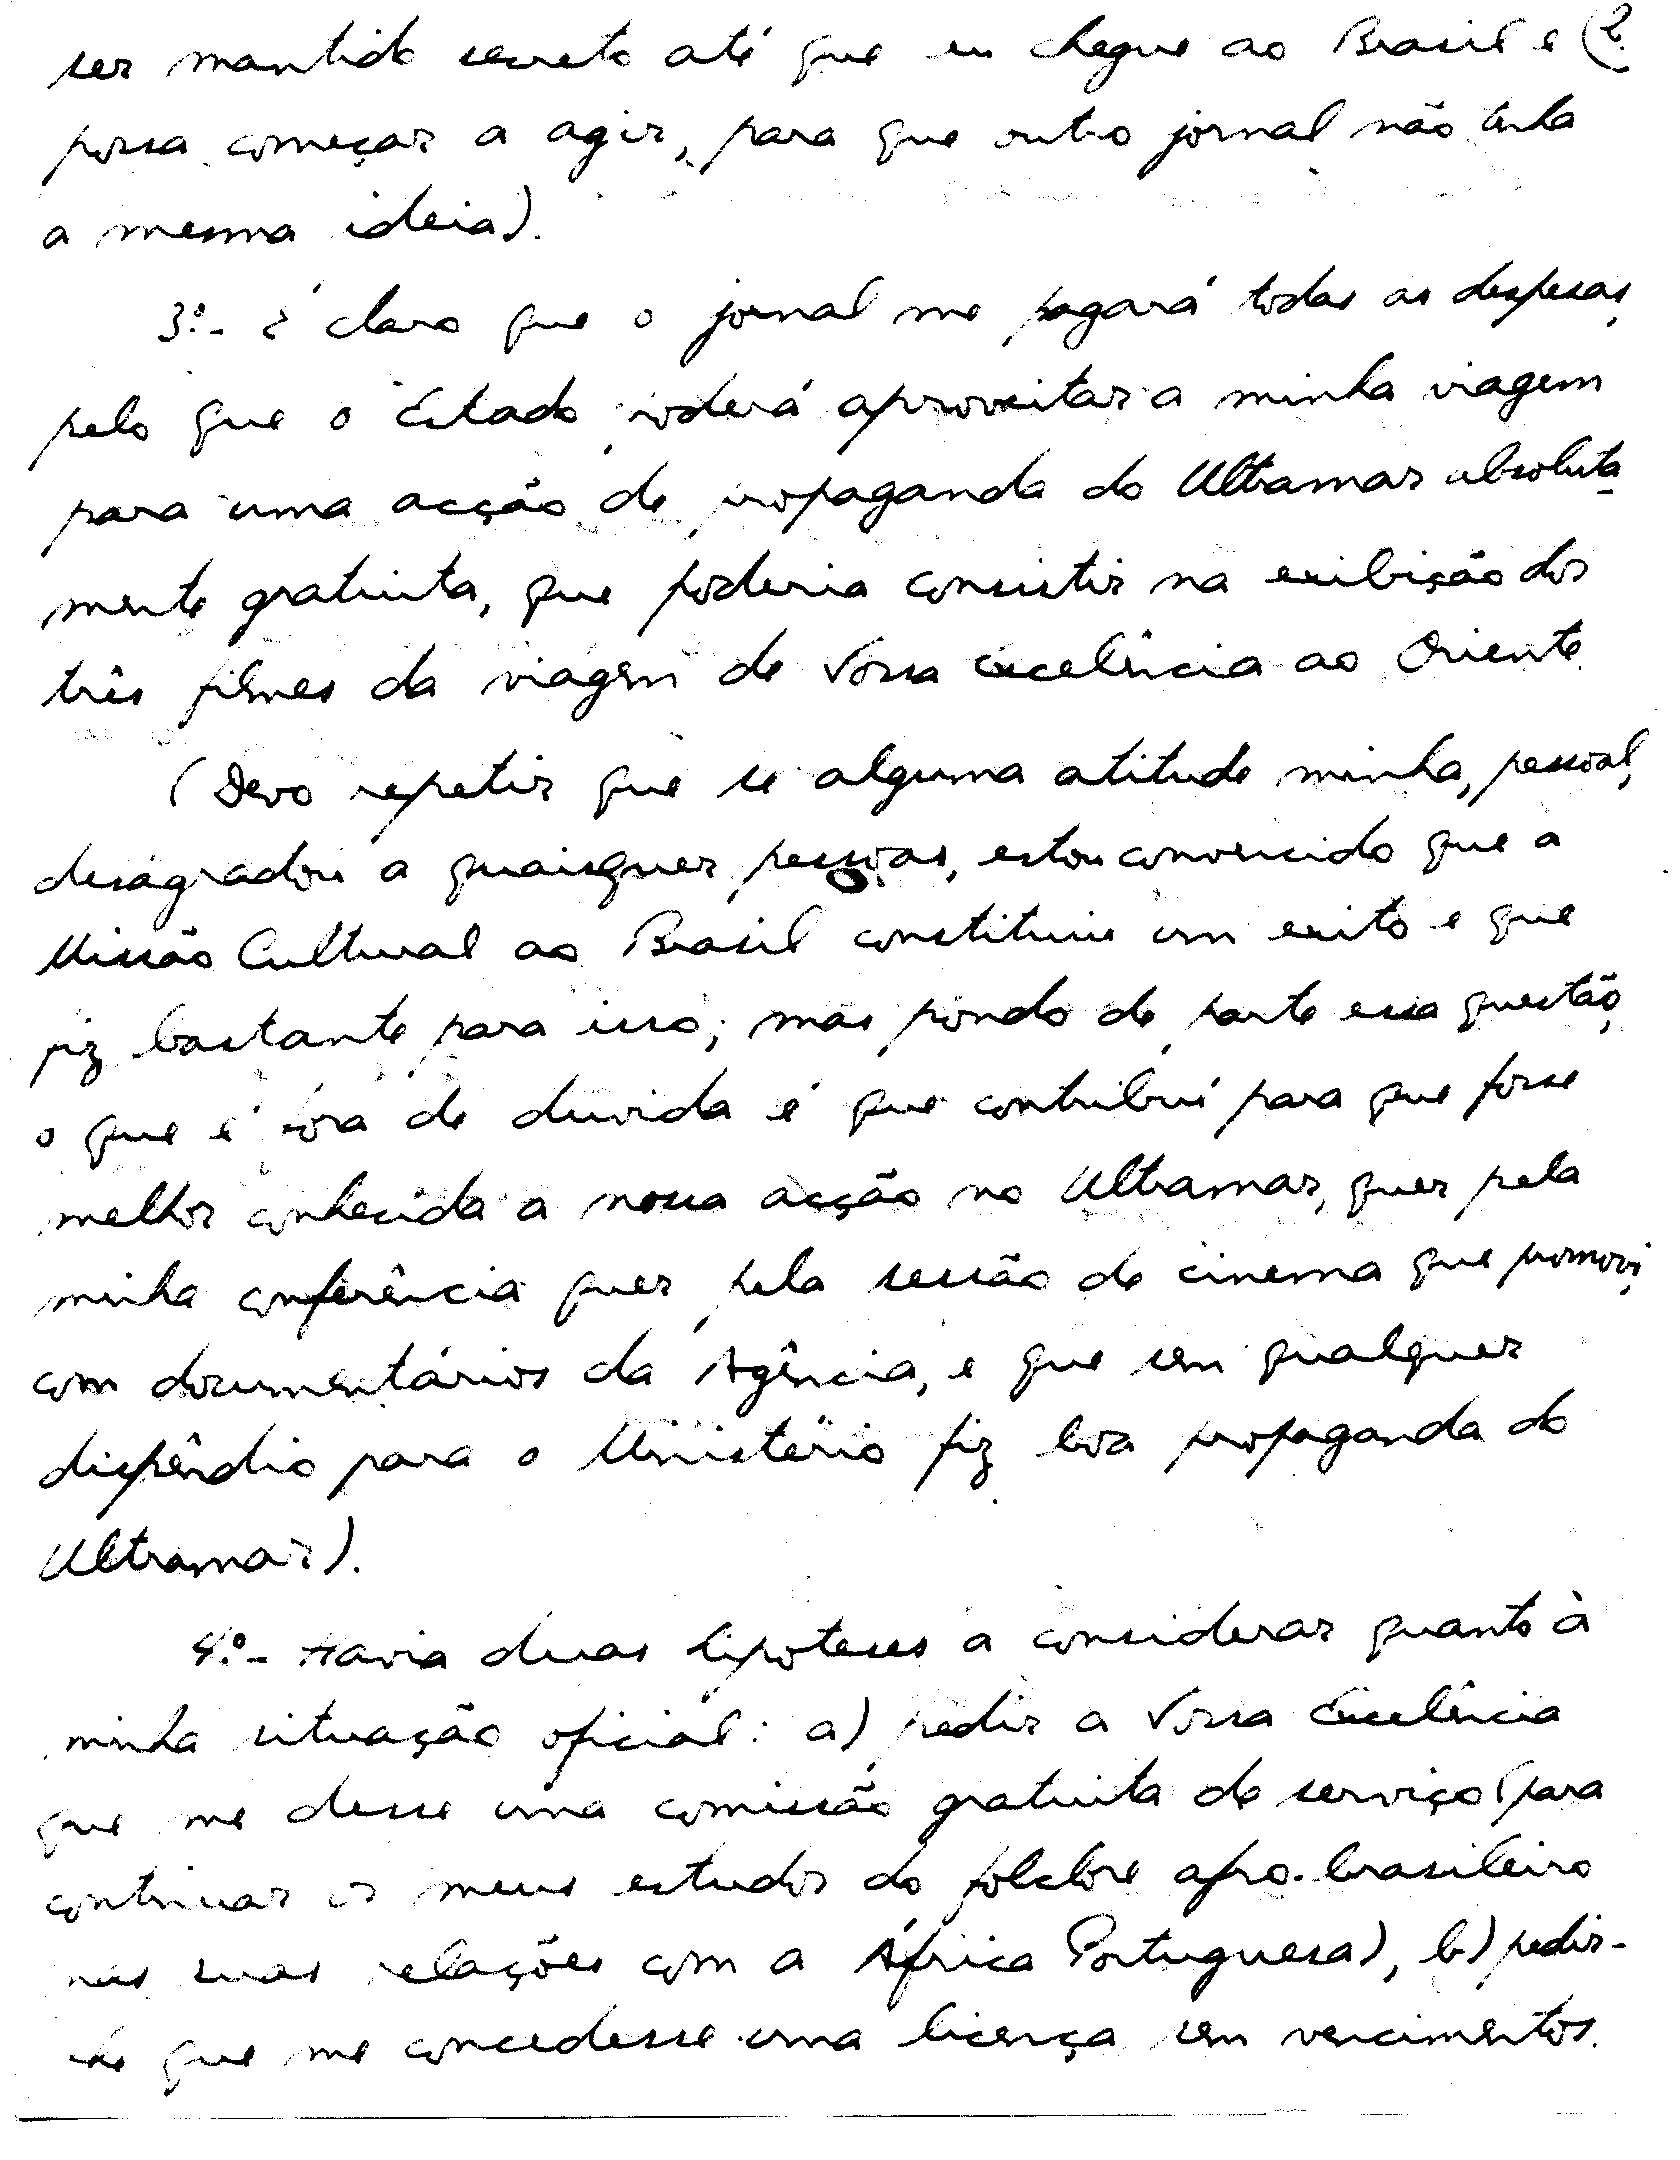 ser mantido secreto até que eu chegue ao Brasil e (2
possa começar a agir, para que outro jornal não tenha
a mesma ideia).
3º.- É claro que o jornal me pagará todas as despesas,
pelo que o Estado poderá aproveitar a minha viagem
para uma acção de propaganda do Ultramar absoluta-
mente gratuita, que poderia consistir na exibição dos
três filmes da viagem de Vossa Excelência ao Oriente
(Devo repetir que se alguma atitude minha, pessoal,
desagradou a quaisquer pessoas, estou convencido que a
Missão Cultural ao Brasil constituiu um exito e que
fiz bastante para isso; mas pondo de parte essa questão,
o que é fora de duvida é que contribuí para que fosse
melhor conhecida a nossa acção no Ultramar, quer pela
minha conferência quer pela sessão de cinema que promovi,
com documentários da Agência, e que sem qualquer
dispêndio para o Ministério fiz boa propaganda do
Ultramar).
4º.- Havia duas hipoteses a considerar quanto à
minha situação oficial: a) pedir a Vossa Excelência
que me desse uma comissão gratuita de serviço (para
continuar os meus estudos do folclore afro-brasileiro
nas suas relações com a África Portuguesa), b) pedir-
-lhe que me concedesse uma licença sem vencimentos.